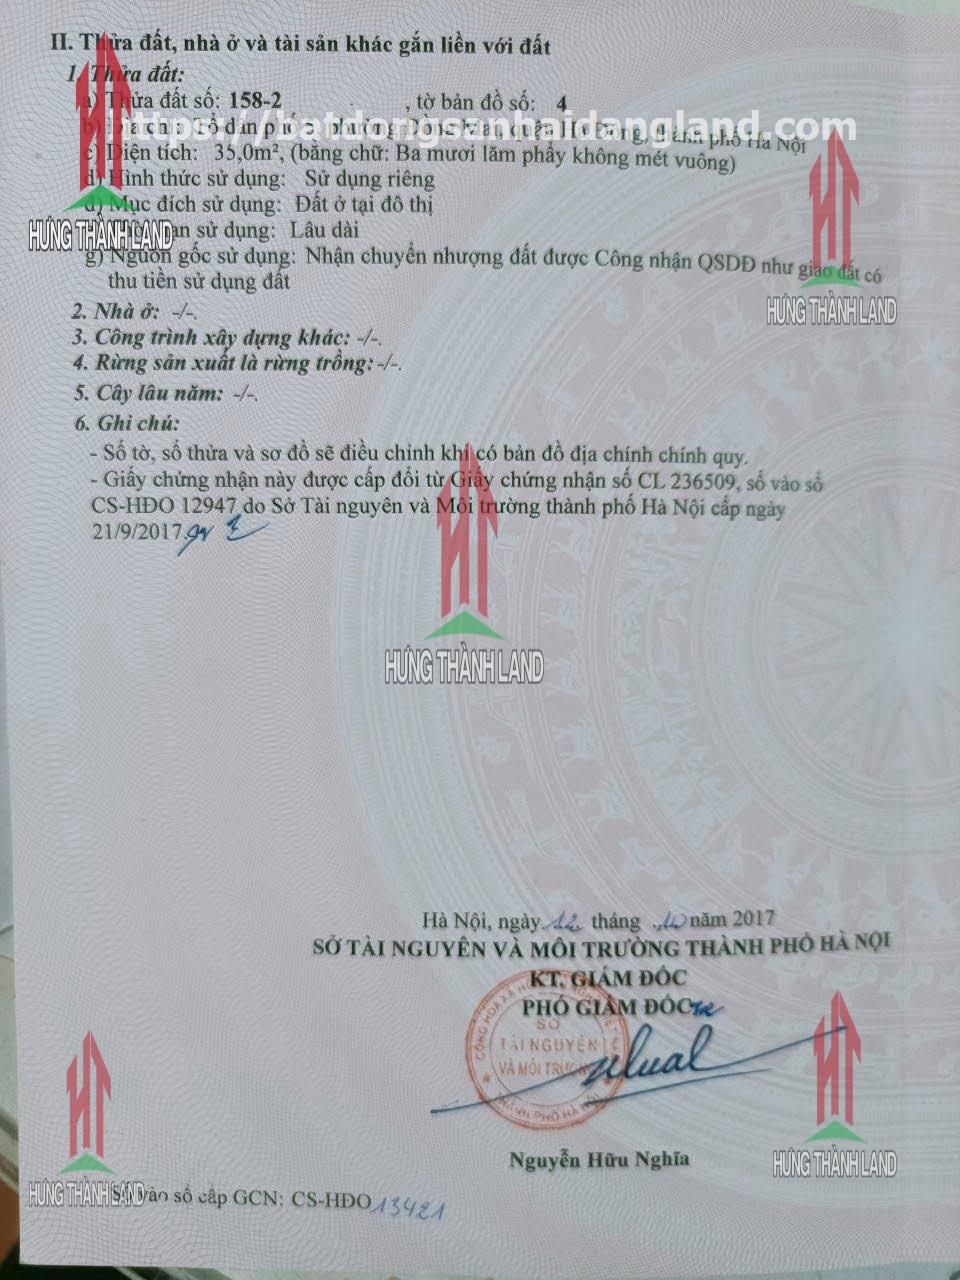 II. Thửa đất, nhà ở và tài sản khác gắn liền với đất
1. Thửa đất:
a) Thửa đất số: 158-2 , tờ bản đồ số: 4
https://batdongsanhaidangland.com
b) Địa chỉ: Tổ dân phố phường Đồng Mai, quận Hà Đông, thành phố Hà Nội
c) Diện tích: 35,0m², (bằng chữ: Ba mươi lăm phẩy không mét vuông)
d) Hình thức sử dụng: Sử dụng riêng
đ) Mục đích sử dụng: Đất ở tại đô thị
sử dụng: Lâu dài
g) Nguồn gốc sử dụng: Nhận chuyển nhượng đất được Công nhận QSDĐ như giao đất có
thu tiền sử dụng đất
2. Nhà ở: -/-.
3. Công trình xây dựng khác: -/-.
4. Rừng sản xuất là rừng trồng: -/-.
5. Cây lâu năm: -/-.
6. Ghi chú:
- Số tờ, số thửa và sơ đồ sẽ điều chỉnh khi có bản đồ địa chính chính quy.
- Giấy chứng nhận này được cấp đổi từ Giấy chứng nhận số CL 236509, số vào sổ
CS-HĐO 12947 do Sở Tài nguyên và Môi trường thành phố Hà Nội cấp ngày
21/9/2017.
HƯNG THÀNH LAND
HƯNG THÀNH LAND
HƯNG THÀNH LAND
Hà Nội, ngày 12 tháng 10 năm 2017
SỞ TÀI NGUYÊN VÀ MÔI TRƯỜNG THÀNH PHỐ HÀ NỘI
KT. GIÁM ĐỐC
PHÓ GIÁM ĐỐC
SỞ
TÀI NGUYÊN
VÀ MÔI TRƯỜNG
THÀNH PHỐ HÀ NỘI
Nguyễn Hữu Nghĩa
HƯNG THÀNH LAND
HƯNG THÀNH LAND
Số vào sổ cấp GCN: CS-HĐO 13421